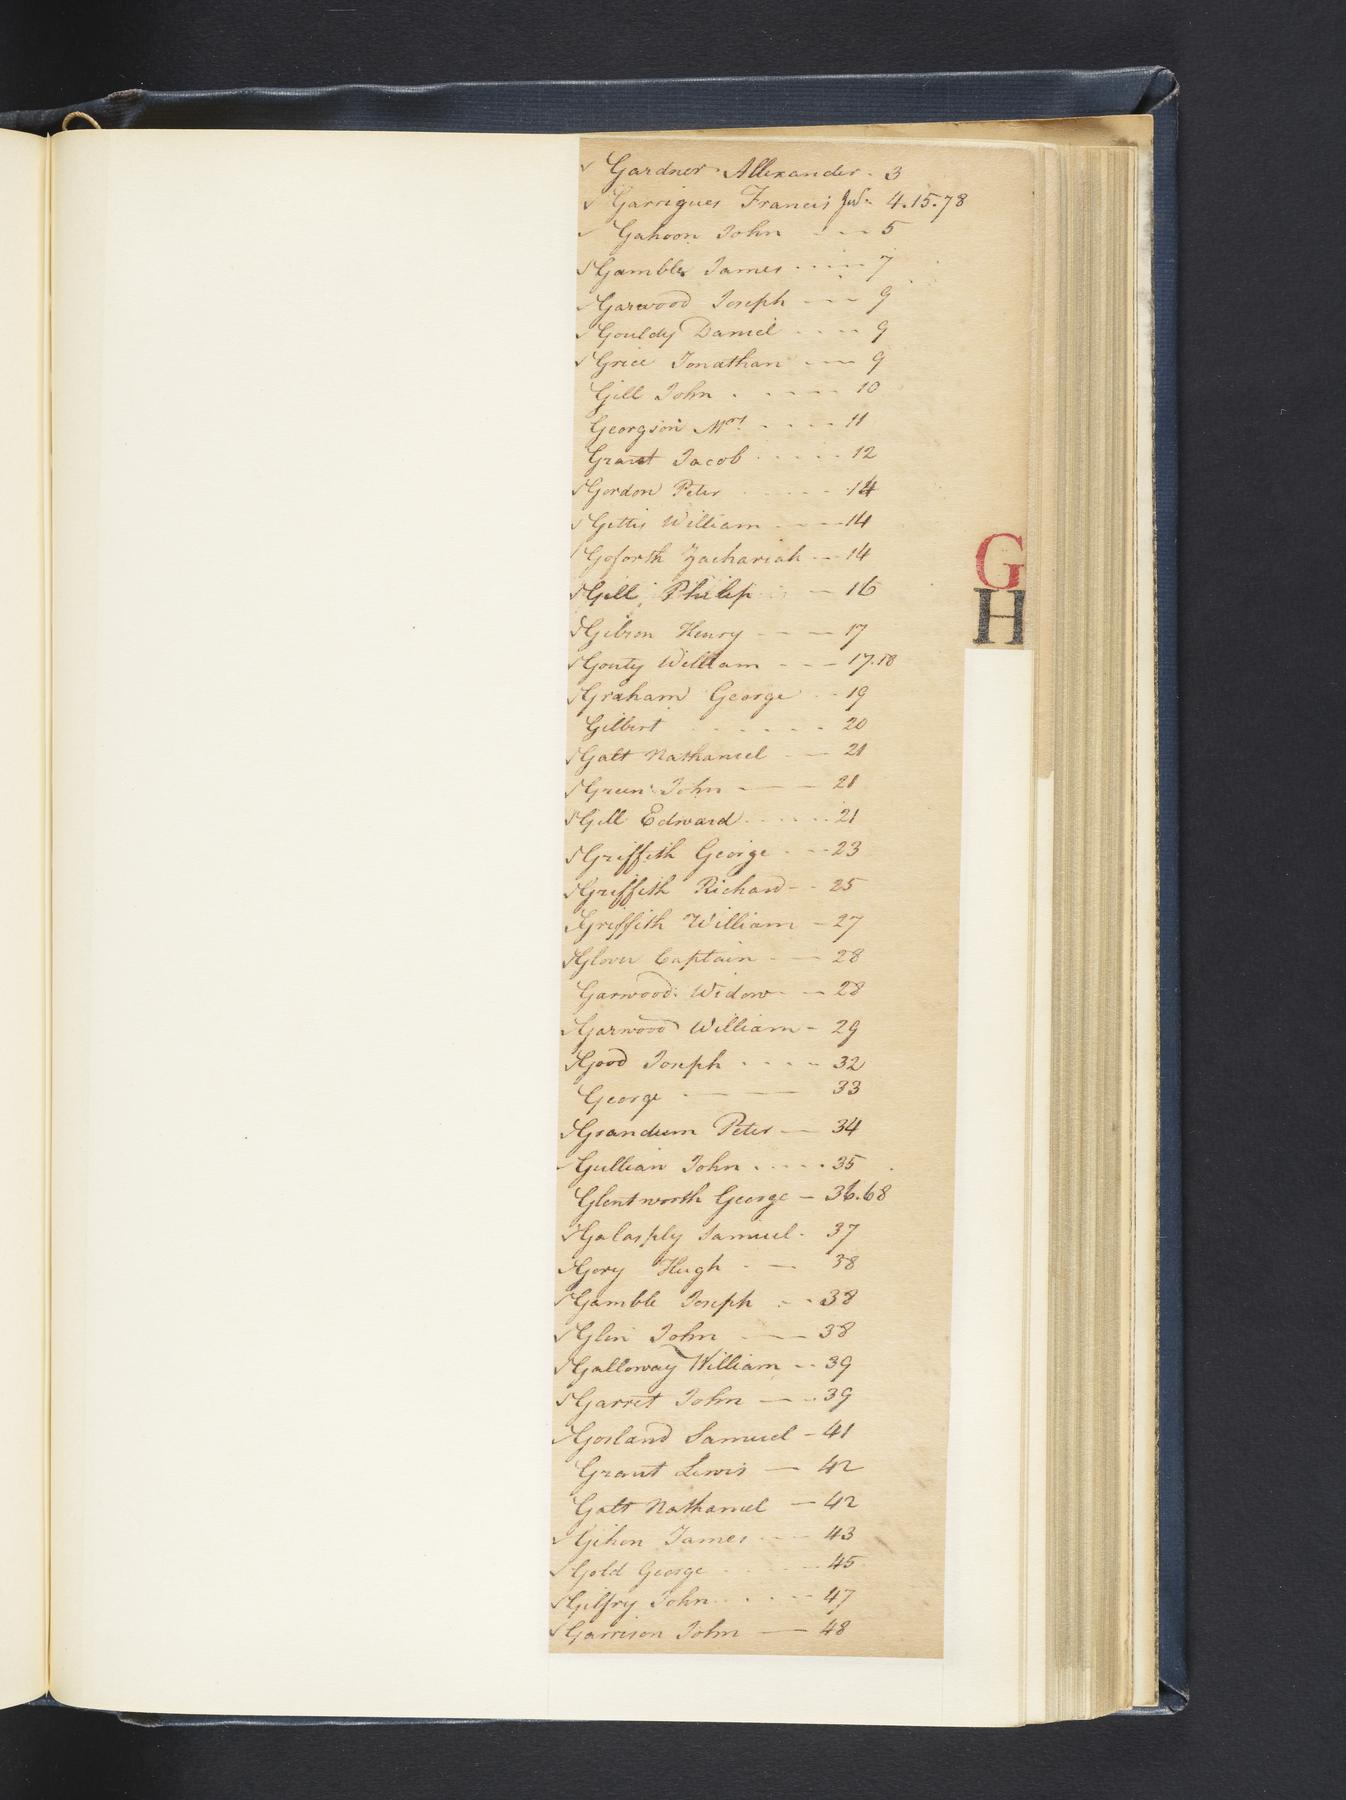 ✓ Gardner Allexander - 3
✓ Garrigues Francis Junr 4.15.78
✓ Gahoon John - - - 5
✓ Gamble James - - - - 7
✓ Garwood Joseph - - - 9
✓ Gouldy Daniel - - - - 9
✓ Grice Jonathan - - - 9
Gill John - - - - - 10
Georgson Mrs - - - - 11
Grant Jacob - - - - - 12
✓ Gordon Peter - - - - - 14
✓ Gettis William - - - - 14
✓ Goforth Zachariah - - 14
✓ Gill Philip - 16
✓ Gibson Henry - - - 17
✓ Gouty William - - - 17.18
✓ Graham George - - 19
Gilbert - - - - - 20
✓ Galt Nathaniel - - 21
✓ Green John - - - 21
✓ Gill Edward - - - - - 21
✓ Griffith George - - - 23
✓ Griffith Richard - - 25
✓ Griffith William - 27
✓ Glover Captain - - 28
Garwood Widow - - 28
✓ Garwood William - 29
✓ Good Joseph - - - - 32
George - - - 33
✓ Grandum Peter - 34
✓ Gullian John - - - - 35
Glentworth George - 36.68
✓ Galasply Samuel - 37
✓ Gory Hugh - - 38
✓ Gamble Joseph - - 38
✓ Glen John - - 38
✓ Galloway William - - 39
✓ Garret John - - 39
✓ Gosland Samuel - 41
Grant Lewis - 42
Galt Nathaniel - 42
✓ Gihon James - - - 43
✓ Gold George - - - - 45
✓ Gilfry John - - - - 47
✓ Garrison John - 48
G
H